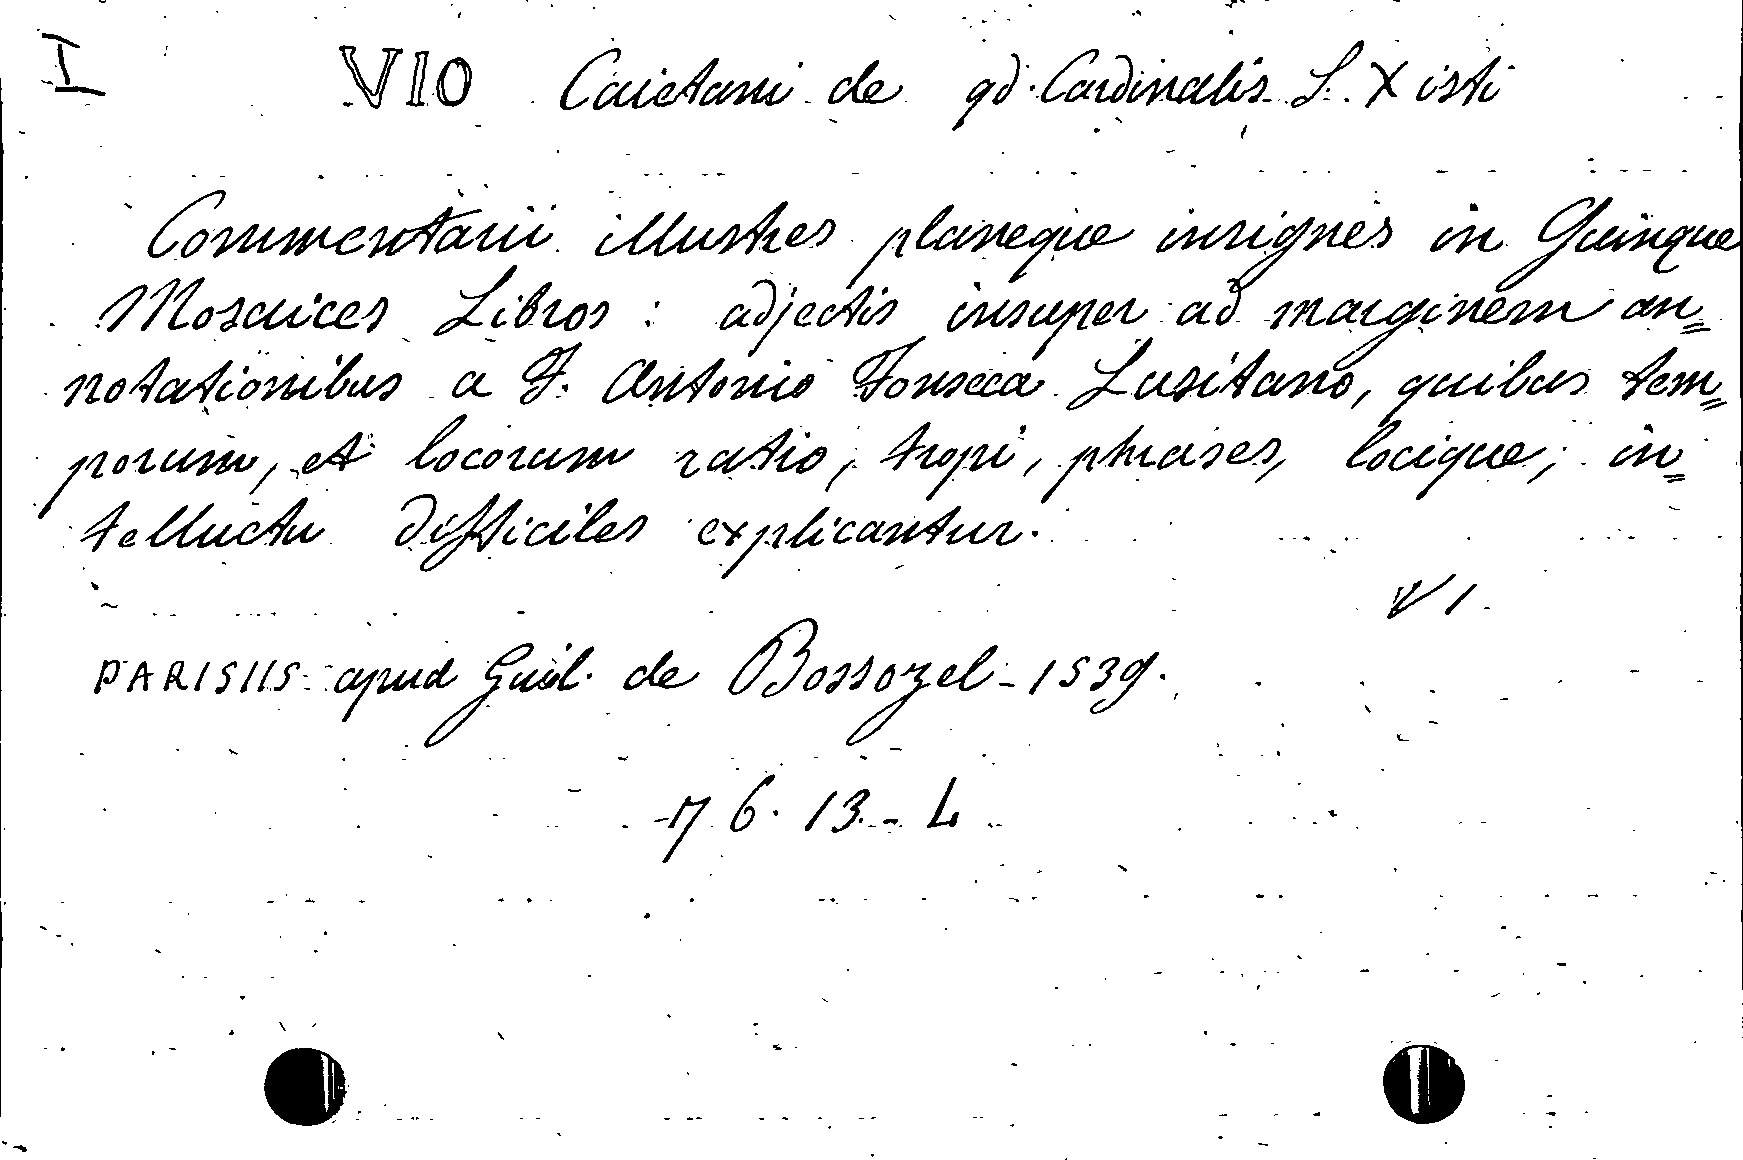 I VIO Caietani de qd. Cardinalis S. Xisti
Commentarii illustres planeque insignes in Quinque
Mosaices Libros : adjectis insuper ad marginem an=
notationibus a F. Antonio Fonseca Lusitano, quibus tem=
porum, et locorum ratio, tropi, phrases, locique, in=
telluctu difficiles explicantur.
VI
PARISIIS apud Guil. de Bossozel - 1539.
76. 13. - L